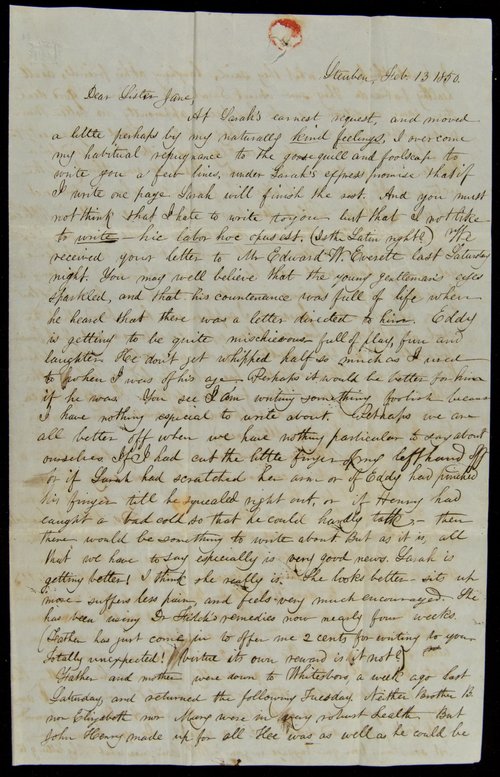 Steuben, Feb. 13 1850.
Dear Sister Jane,
At Sarah's earnest request, and moved
a little perhaps by my naturally kind feelings, I overcome
my habitual repugnance to the goosequill and foolscap to
write you a few lines, under Sarah's express promise that if
I write one page Sarah will finish the rest. And you must
not think that I hate to write to you but that I not like
to write – hic labor hoc opus est. (Is the Latin right?) We
received your letter to Mr Edward W. Everett last Saturday
night. You may well believe that the young gentleman's eyes
sparkled, and that his countenance was full of life when
he heard that there was a letter directed to him. Eddy
is getting to be quite mischievous full of play, fun and
laughter. He don't get whipped half so much as I used
to when I was of his age. Perhaps it would be better for him
if he was. You see I am writing something foolish because
I have nothing especial to write about. Perhaps we are
all better off when we have nothing particular to say about
ourselves. If I had cut the little finger of my left hand off
or if Sarah had scratched her arm or if Eddy had pinched
his finger till he squealed right out, or if Henry had
caught a bad cold so that he could hardly talk, – then
there would be something to write about But as it is, all
that we have to say especially is very good news. Sarah is
getting better! I think she really is. She looks better – sits up
more – suffers less pain, and feels very much encouraged. She
has been using Dr Fitch's remedies now nearly four weeks.
(Father has just come in to offer me 2 cents for writing to you.
Totally unexpected! Virtue its own reward is it not?)
Father and mother were down to Whitesboro, a week ago last
Saturday, and returned the following Tuesday. Neither Brother R.
nor Elizabeth nor Mary were in very robust health. But
John Henry made up for all Hee was as well as he could be